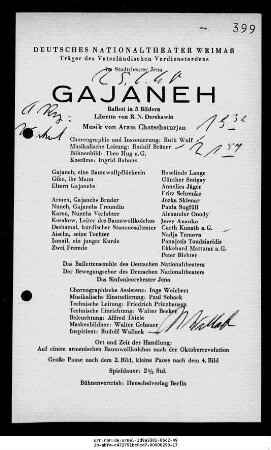 399
DEUTSCHES NATIONALTHEATER WEIMAR
Träger des Vaterländischen Verdienstordens
im Stadttheater Jena
GAJANEH
Ballett in 5 Bildern
Libretto von R. N. Dershawin
Musik von Aram Chatschaturjan
Choreographie und Inszenierung: Ruth Wolf
Musikalische Leitung: Rudolf Bräuer
Bühnenbild: Theo Hug a.G.
Kostüme: Ingrid Rahaus
Gajaneh, eine Baumwollpflückerin Roselinde Lange
Giko, ihr Mann Günther Serigay
Eltern Gajanehs Annelies Jäger
Fritz Schrenke
Armen, Gajanehs Bruder Jozka Sklenar
Nuneh, Gajanehs Freundin Paula Sugfüll
Karen, Nunehs Verlobter Alexander Onody
Kasakow, Leiter des Baumwollkolchos Joszy Assenko
Deshamal, kurdischer Stammesältester Garth Kamath a. G.
Aischa, seine Tochter Nadja Tumova
Ismail, ein junger Kurde Panajotis Tondsiaridis
Zwei Fremde Ekkehard Mettanat a. G.
Peter Richter
Das Ballettensemble des Deutschen Nationaltheaters
Der Bewegungschor des Deutschen Nationaltheaters
Das Sinfonieorchester Jena
Choreographische Assistenz: Inge Weichert
Musikalische Einstudierung: Paul Soback
Technische Leitung: Friedrich Prinzhausen
Technische Einrichtung: Walter Becker
Beleuchtung: Alfred Thiele
Maskenbildner: Walter Gebauer
Inspizient: Rudolf Wallnek
Ort und Zeit der Handlung:
Auf einem armenischen Baumwollkolchos nach der Oktoberrevolution
Große Pause nach dem 2. Bild, kleine Pause nach dem 4. Bild
Spieldauer: 2½ Std.
Bühnenvertrieb: Henschelverlag Berlin